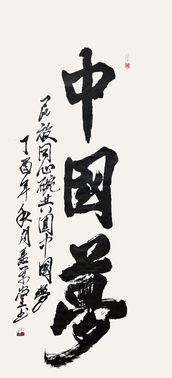 中國夢
民族同心碗共圓中國夢
丁酉年秋月